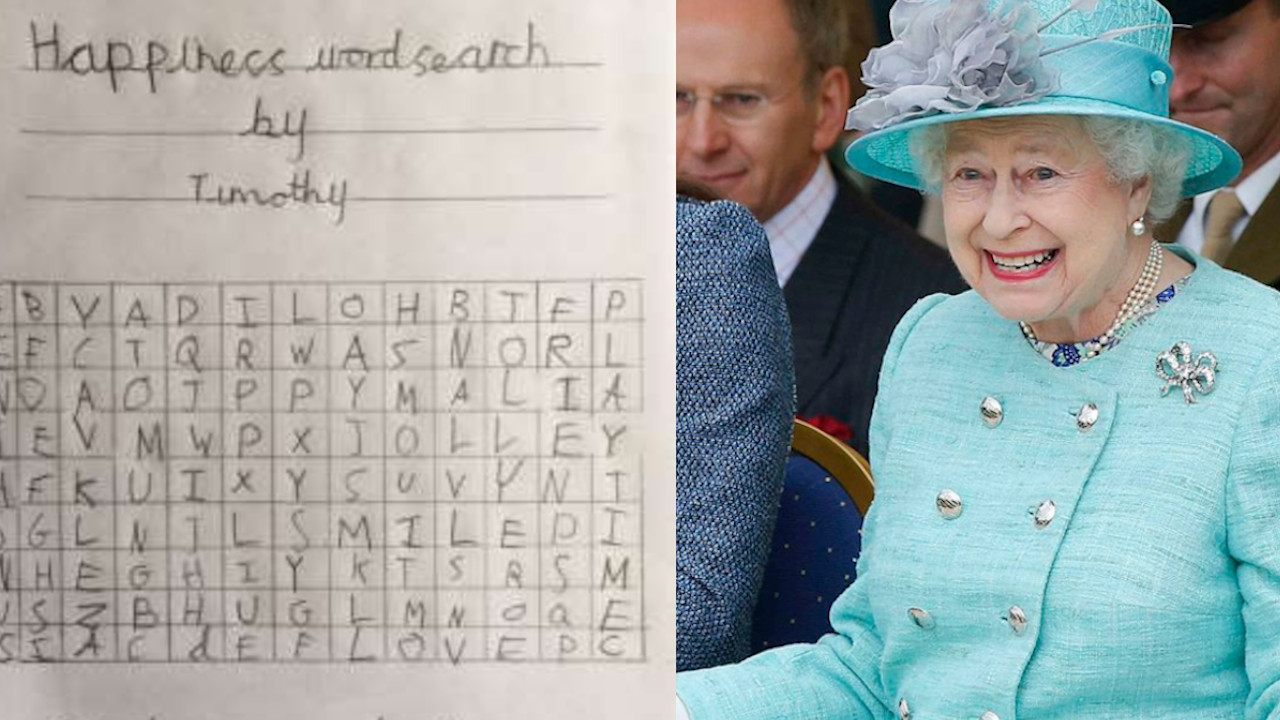 Happiness wordsearch
by
Timothy
B V A D I L O H B T F P
F C T Q R W A S N O R L
D A O T P P Y M A L I A
E V M W P X J O L L E Y
F K U I X Y S U V Y N T
G L N T L S M I L E D I
H E G H I Y K T S R S M
S Z B H U G L M N O Q E
I A C d E F L O V E P C